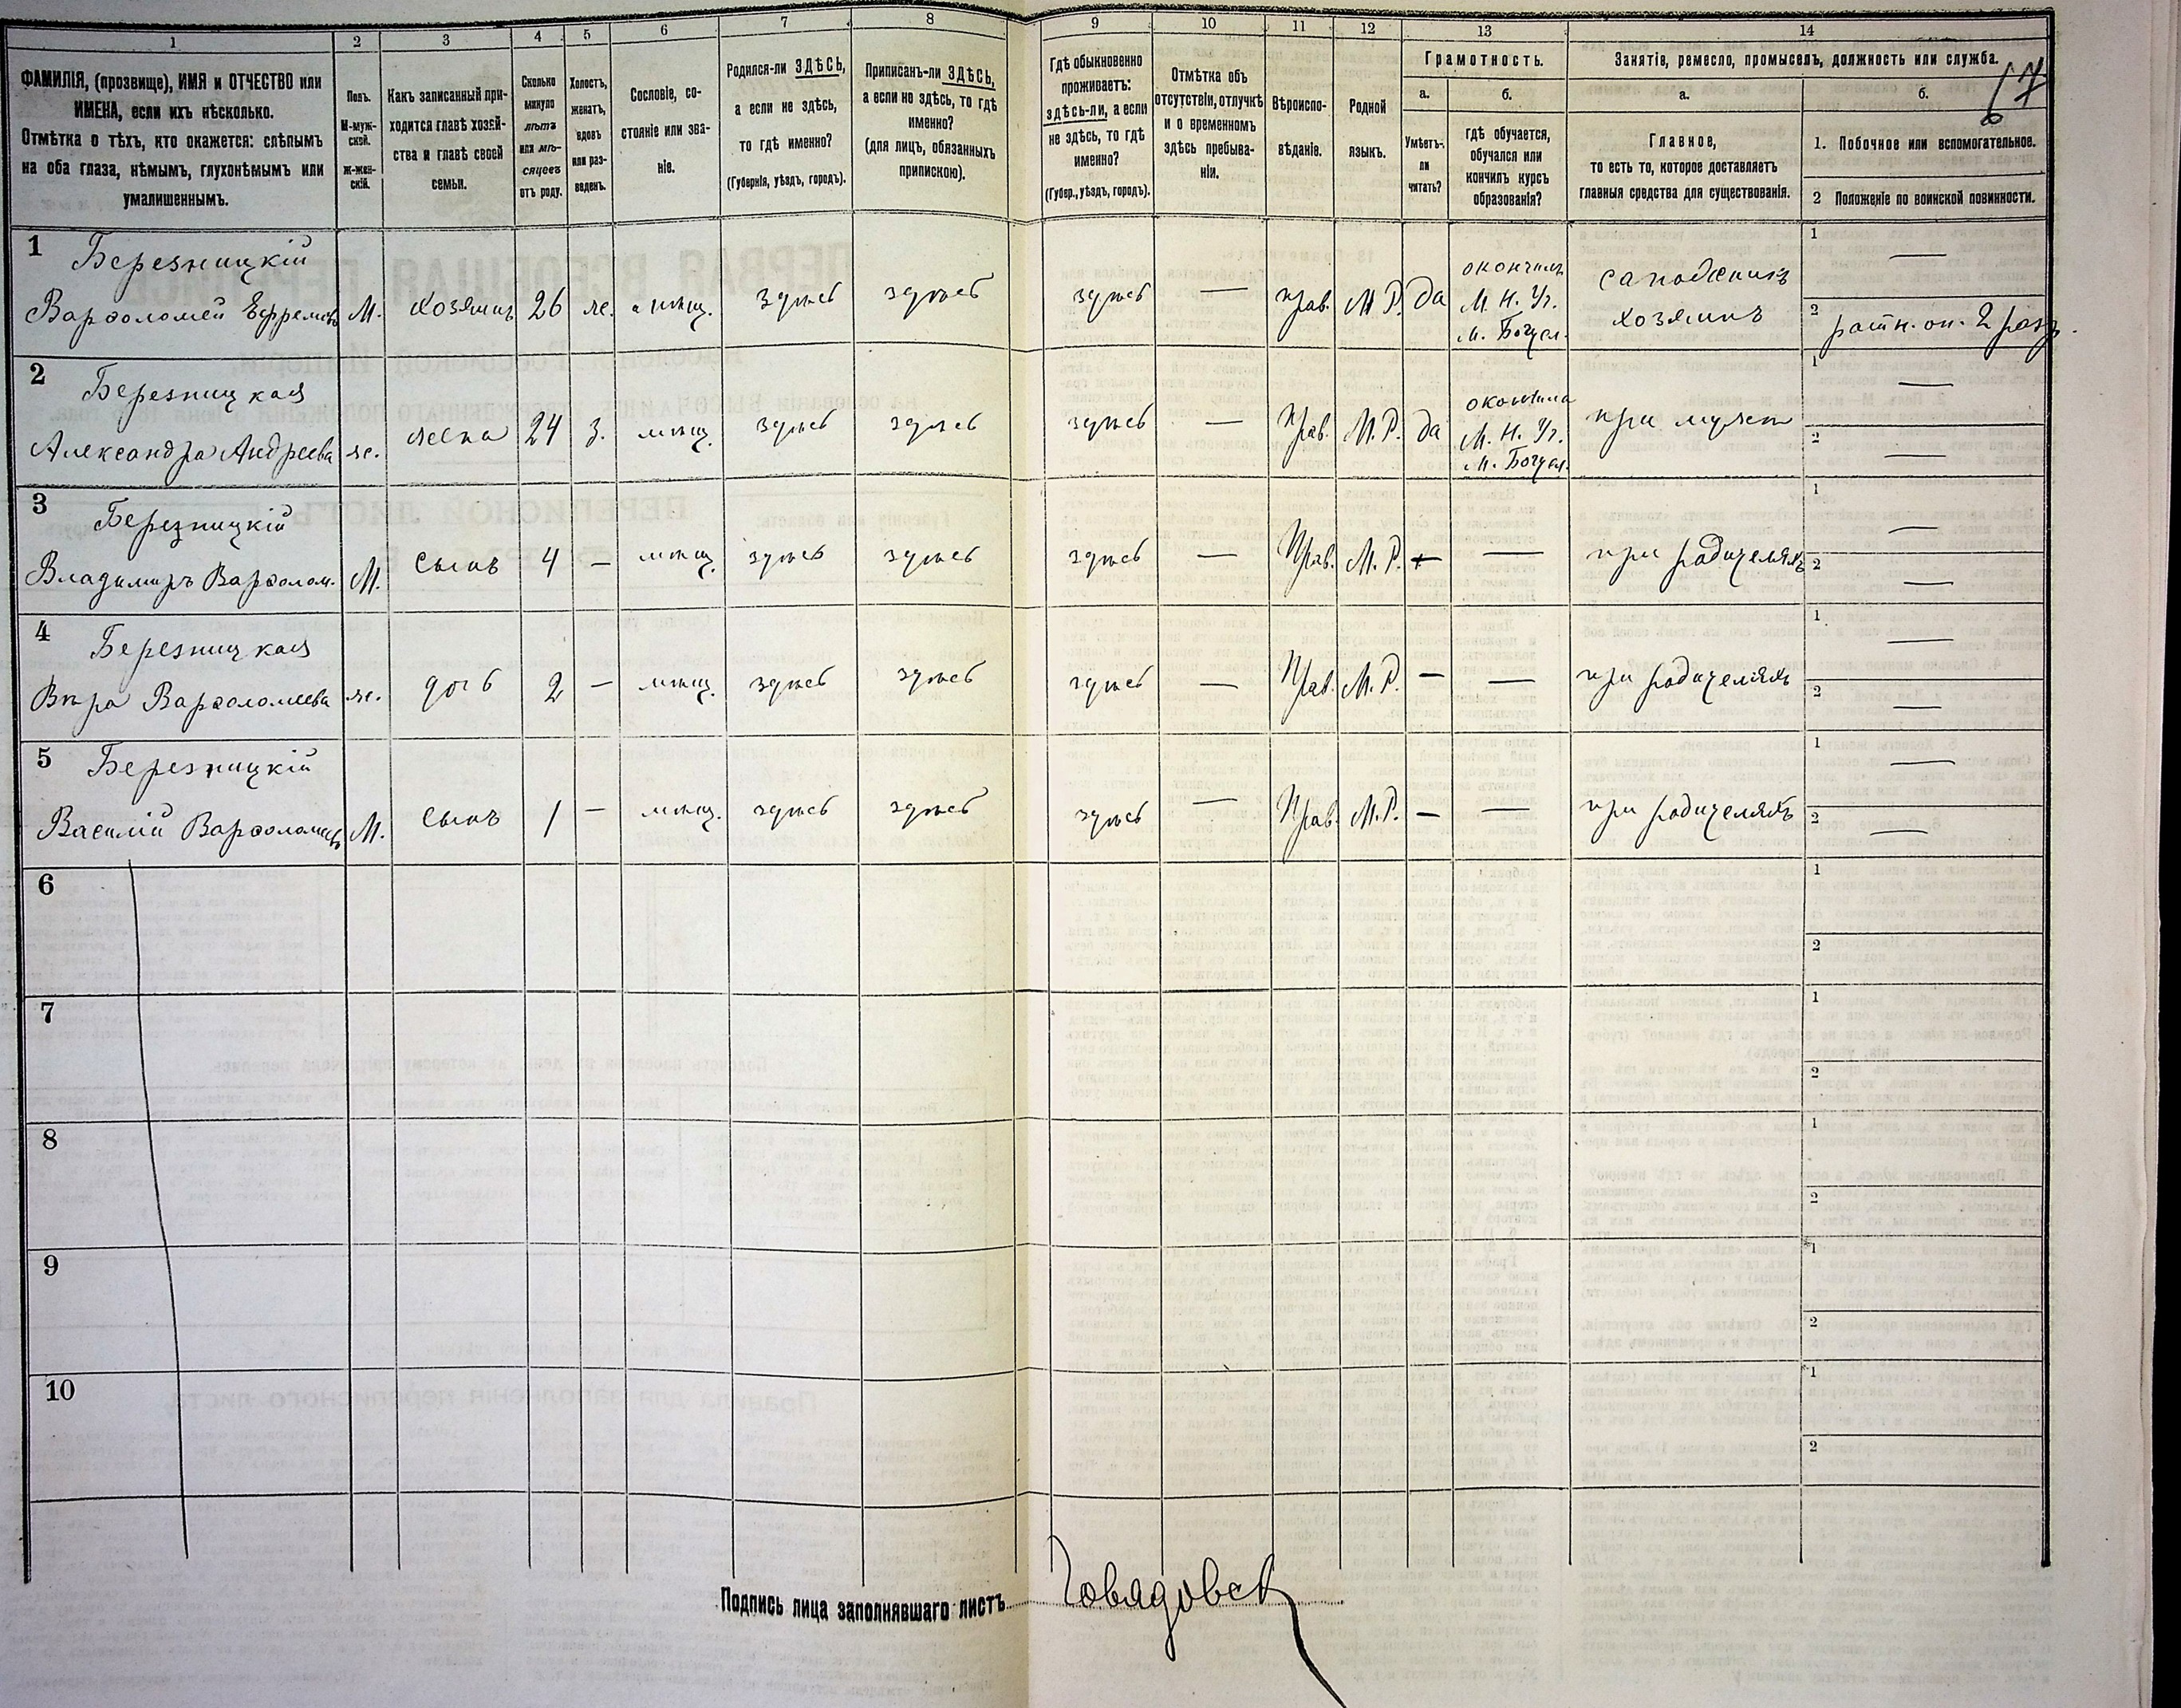 1 2 3 4 5 6 7 8 9 10 11 12 13 14
ФАМИЛІЯ, (прозвище), ИМЯ и ОТЧЕСТВО или
ИМЕНА, если ихъ нѣсколько.
Отмѣтка о тѣхъ, кто окажется: слѣпымъ
на оба глаза, нѣмымъ, глухонѣмымъ или
умалишеннымъ.
Полъ.
М-муж-
ской.
Ж-жен-
скій.
Какъ записанный при-
ходится главѣ хозяй-
ства и главѣ своей
семьи.
Сколько
минуло
лѣтъ
или мѣ-
сяцевъ
отъ роду.
Холостъ,
женатъ,
вдовъ
или раз-
веденъ.
Сословіе, со-
стояніе или зва-
ніе.
Родился-ли ЗДѢСЬ,
а если не здѣсь,
то гдѣ именно?
(Губернія, уѣздъ, городъ).
Приписанъ-ли ЗДѢСЬ,
а если но здѣсь, то гдѣ
именно?
(для лицъ, обязанныхъ
припискою).
Гдѣ обыкновенно
проживаетъ:
здѣсь-ли, а если
не здѣсь, то гдѣ
именно?
(Губер., уѣздъ, городъ).
Отмѣтка объ
отсутствіи, отлучкѣ
и о временномъ
здѣсь пребыва-
ніи.
Вѣроиспо-
вѣданіе.
Родной
языкъ.
Грамотность.
а.
Умѣетъ-
ли
читать?
б.
гдѣ обучается,
обучался или
кончилъ курсъ
образованія?
Занятіе, ремесло, промыселъ, должность или служба.
а.
Главное,
то есть то, которое доставляетъ
главныя средства для существованія.
б.
1. Побочное или вспомогательное.
2 Положеніе по воинской повинности.
1 Березницкій
Варѳоломей Ефремовъ М. хозяинъ 26 ж. мѣщ. здѣсь здѣсь здѣсь — прав. М.Р. да
окончилъ
М. Н. Уч.
м. Богусл.
сапожникъ
хозяинъ
1 —
2 ратн. оп. 2 разр.
2 Березницкая
Александра Андреева ж. жена 24 з. мѣщ. здѣсь здѣсь здѣсь — Прав. М.Р. да
окончила
М. Н. Уч.
м. Богусл.
при мужѣ
1 —
2 —
3 Березницкій
Владимиръ Варѳолом. М. сынъ 4 — мѣщ. здѣсь здѣсь здѣсь — Прав. М.Р. — — при родителяхъ
1 —
2 —
4 Березницкая
Вѣра Варѳоломеева ж. дочь 2 — мѣщ. здѣсь здѣсь здѣсь — Прав. М.Р. — — при родителяхъ
1 —
2 —
5 Березницкій
Василій Варѳоломеевъ М. сынъ 1 — мѣщ. здѣсь здѣсь здѣсь — Прав. М.Р. — — при родителяхъ
1 —
2 —
6 1
2
7 1
2
8 1
2
9 1
2
10 1
2
Подпись лица заполнявшаго листъ